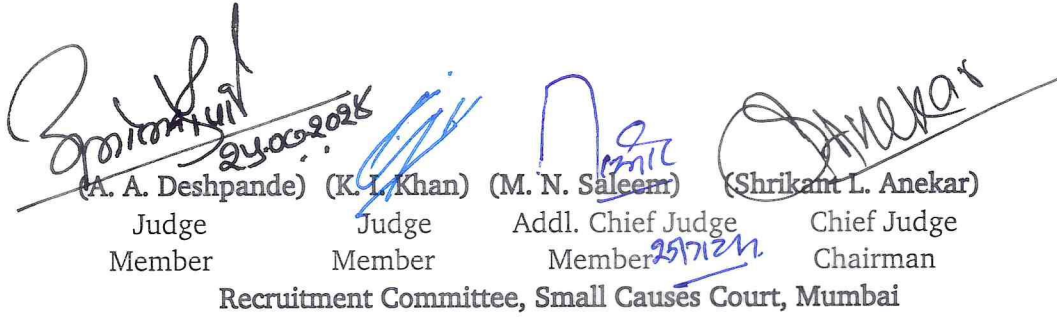 Anekar
(A. A. Deshpande) (K. I. Khan) (M. N. Saleem) (Shrikant L. Anekar)
Judge Judge Addl. Chief Judge Chief Judge
Member Member Member Chairman
Recruitment Committee, Small Causes Court, Mumbai